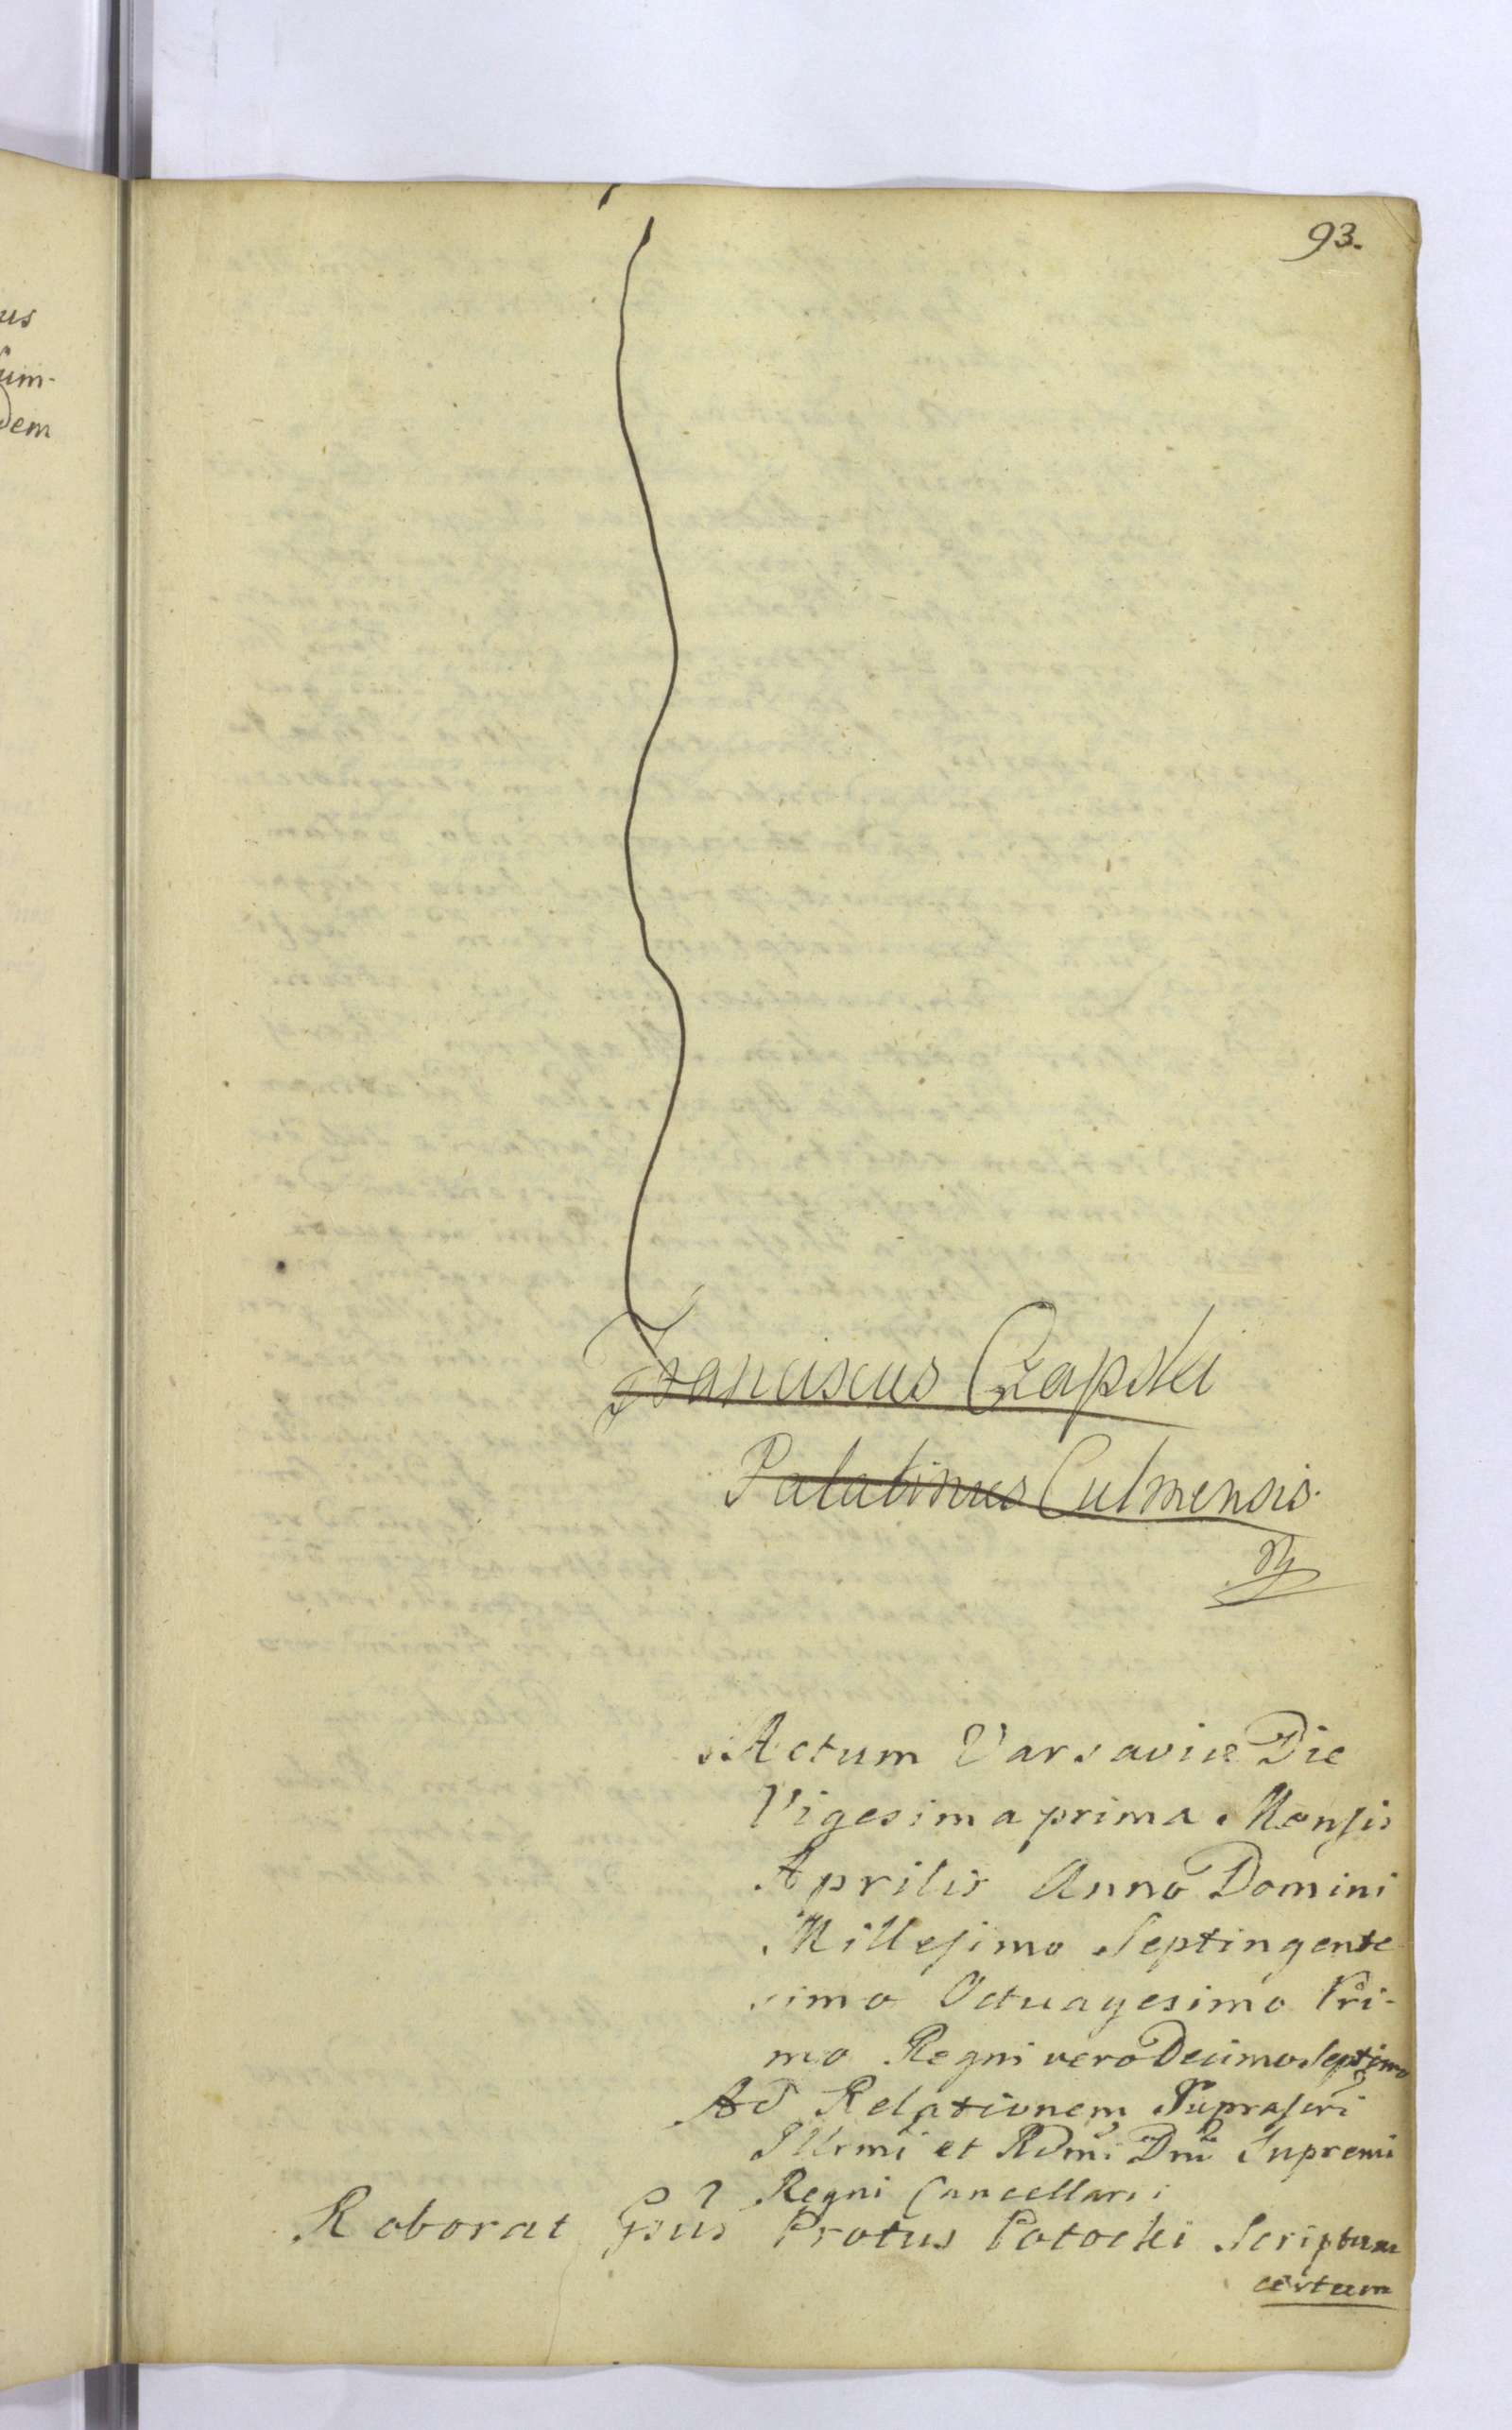 93.
us
sum-
dem
Franciscus Czapski
Palatinus Culmensis.
Actum Varsaviæ Die
Vigesima prima Mensis
Aprilis Anno Domini
Millesimo Septingente
simo Octuagesimo Pri-
mo Regni vero Decimo Septimo
Ad Relationem Suprascri
Illrmi et Rdmi Dni Supremi
Regni Cancellarii
Roborat Gsus Protus Potocki Scriptum
certum